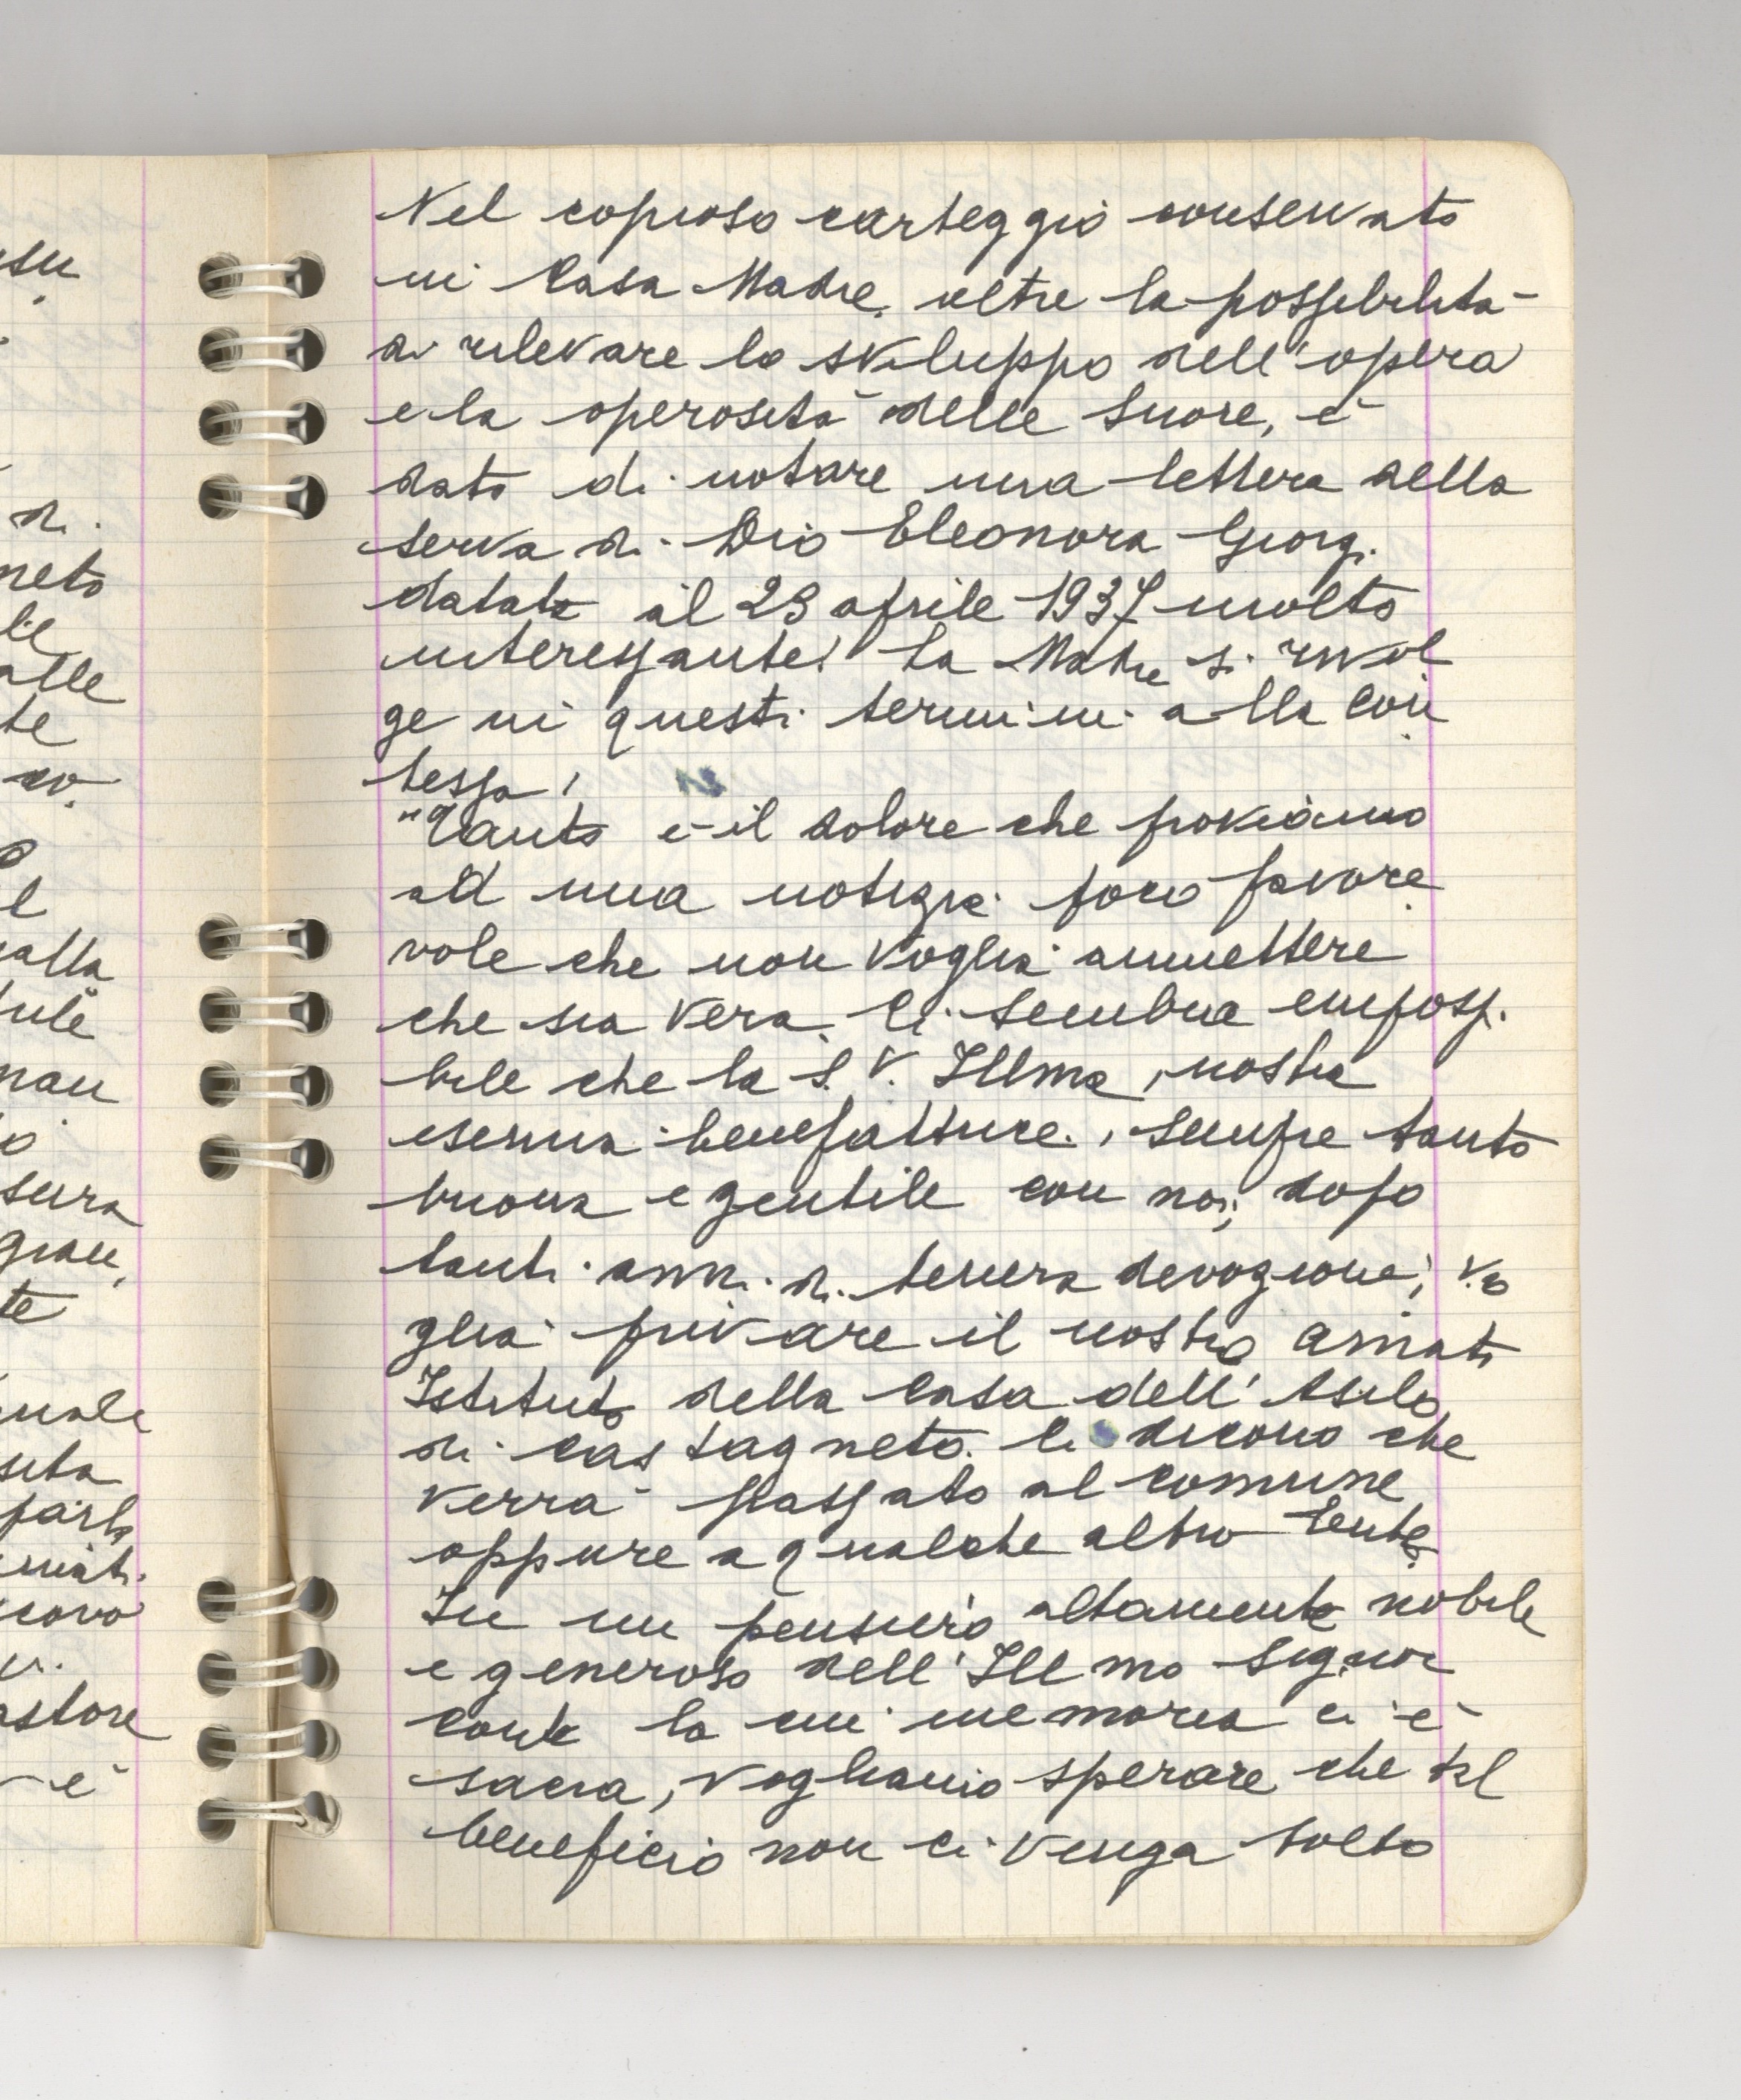 Nel copioso carteggio conservato
in Casa Madre, oltre la possibilità
di rilevare lo sviluppo dell'opera
e la operosità delle Suore, è
dato di notare una lettera della
serva di Dio Eleonora Giorgi
datata il 23 aprile 1937 molto
interessante! La Madre si rivol
ge in questi termini alla Con
tessa!
"Tanto è il dolore che proviamo
ad una notizia poco favore
vole che non voglia ammettere
che sia vera. Ci sembra impossi
bile che la S. V. Ill.ma, nostra
esimia benefattrice, sempre tanto
buona e gentile con noi, dopo
tanti anni di tenera devozione, vo
glia privare il nostro amato
Istituto della Casa dell'Asilo
di Castagneto. Ci dicono che
verrà passato al Comune
oppure a qualche altro Ente.
In un pensiero altamente nobile
e generoso dell'Ill mo Signor
Conte la cui memoria ci è
sacra, vogliamo sperare che tal
beneficio non ci venga tolto